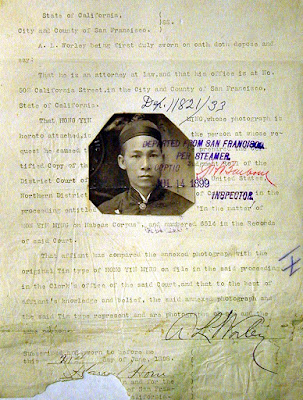 State of California,
City and County of San Francisco. SS.
A. L. Worley being first duly sworn on oath doth depose and
say:
That he is an attorney at law, and that his office is at No.
508 California Street, in the City and County of San Francisco,
State of California.
Dep. 11821/33
That HONG YIN MING, whose photograph is
hereto attached, is the person at whose re-
quest he caused
DEPARTED FROM SAN FRANCISCO
PER STEAMER
tified Copy, of the
District Court of the United States,
JUL 14 1899
Northern District of
INSPECTOR.
the proceeding entitled "In the matter of
YIN MING on Habeas Corpus", and numbered in the Records
of said Court.
That affiant has compared the annexed photograph with the
original Tin type of HONG YIN MING on file in the said proceeding
in the Clerk's office of the said Court, and that to the best of
affiant's knowledge and belief, the said annexed photograph and
the said Tin type represent and are
the said
A L Worley
Subscribed and sworn to before me
this day of June, 1899.
in and for the